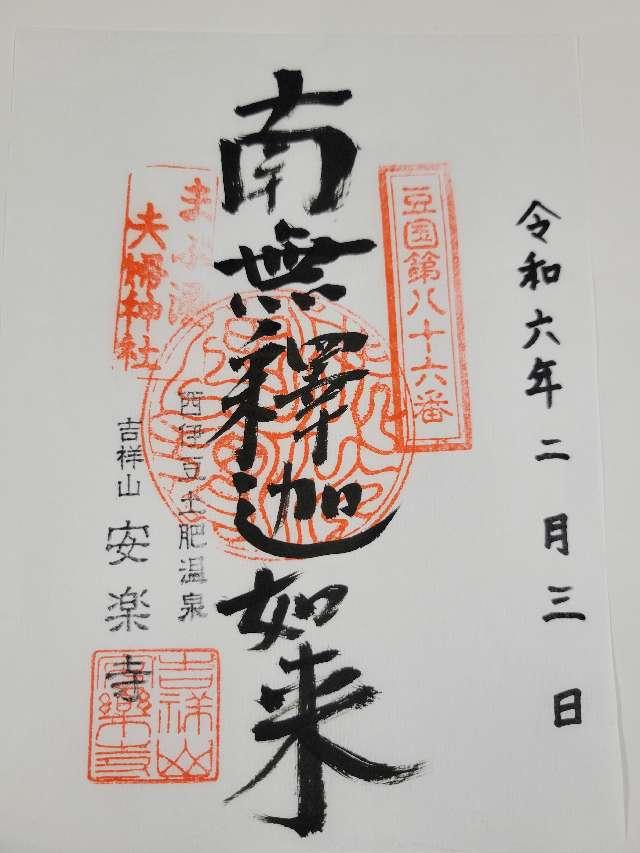 令和六年二月三日
豆国第八十六番
南無釋迦如来
まぶ湯
夫婦神社
西伊豆土肥温泉
吉祥山 安楽寺
吉祥山
安樂寺